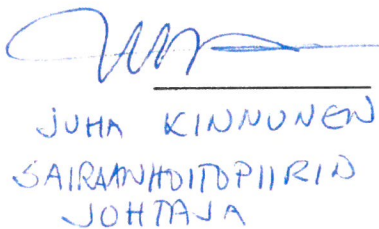 JUHA KINNUNEN
SAIRAANHOITOPIIRIN
JOHTAJA